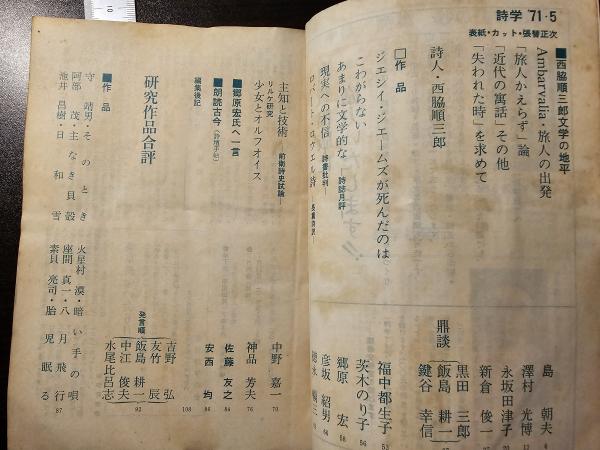 詩学 '71・5
表紙・カット・張替正次
■西脇順三郎文学の地平
Ambarvalia・旅人の出発 島 朝夫
「旅人かえらず」論 澤村 光博 12
「近代の寓話」その他 永坂田津子
「失われた時」を求めて 新倉 俊一
詩人・西脇順三郎 鼎談 黒田 三郎 飯島 耕一 鍵谷 幸信
□作品
ジェシイ・ジェームズが死んだのは 福中都生子 53
こわがらない 茨木のり子 56
あまりに文学的な 詩誌月評 郷原 宏 58
現実への不信 詩書批判 彦坂 紹男
ロバート・ロウエル詩
主知と技術 ―前衛詩史試論― 中野 嘉一 70
リルケ研究
少女とオルフオイス 神品 芳夫 76
■郷原宏氏へ一言 佐藤 友之 84
■朗読古今 (詩壇手帖) 安西 均 86
編集後記 108
研究作品合評 発言順 吉野 弘 友竹 辰 飯島 耕一 中江 俊夫 水尾比呂志 92
■作品
守 靖男・そのとき 火星村 漠・暗い手の唄
阿部 茂・主なき貝殻 座間 真一・八月飛行
池井 昌樹・日和雪 素貝 亮司・胎児眠る 87